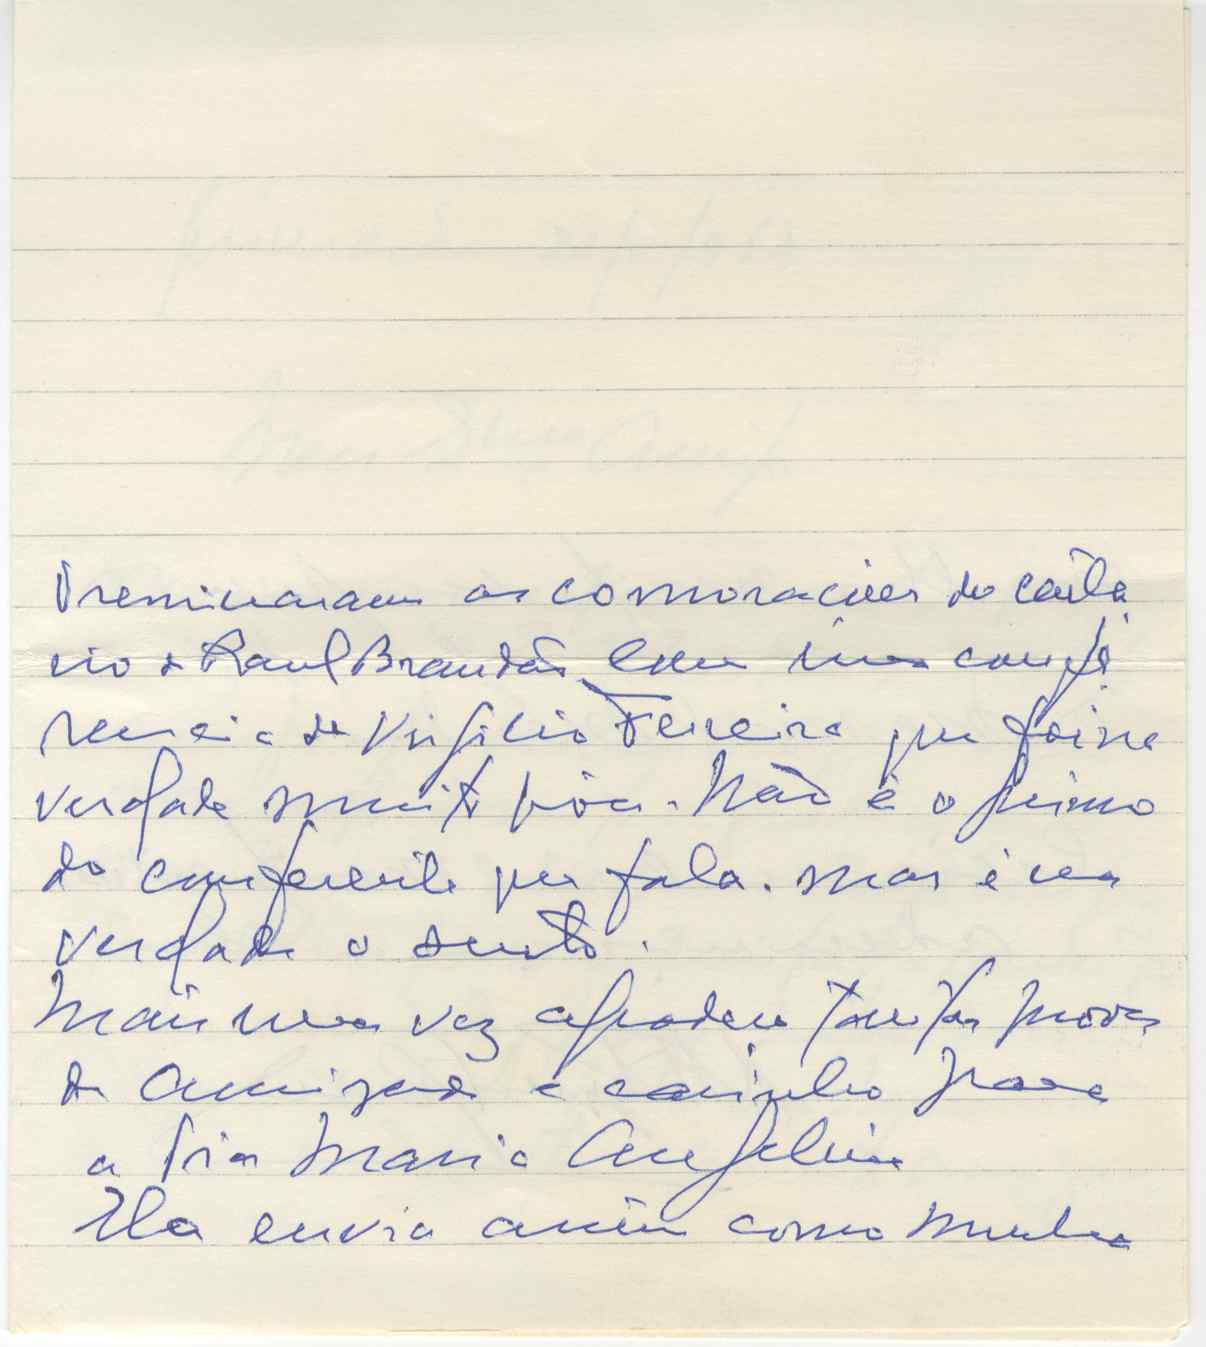 Treminaram as comoracões do cente
nio de Raul Brandão com uma confe
rencia de Virgilio Ferreira que foi na
verdade muito boa. Não é o primo
do conferente que fala. mas é na
verdade o
Mais uma vez agradeu tantas provas
de amizade e carinho para
a tia Maria Angelina
Ela envia assim como minha